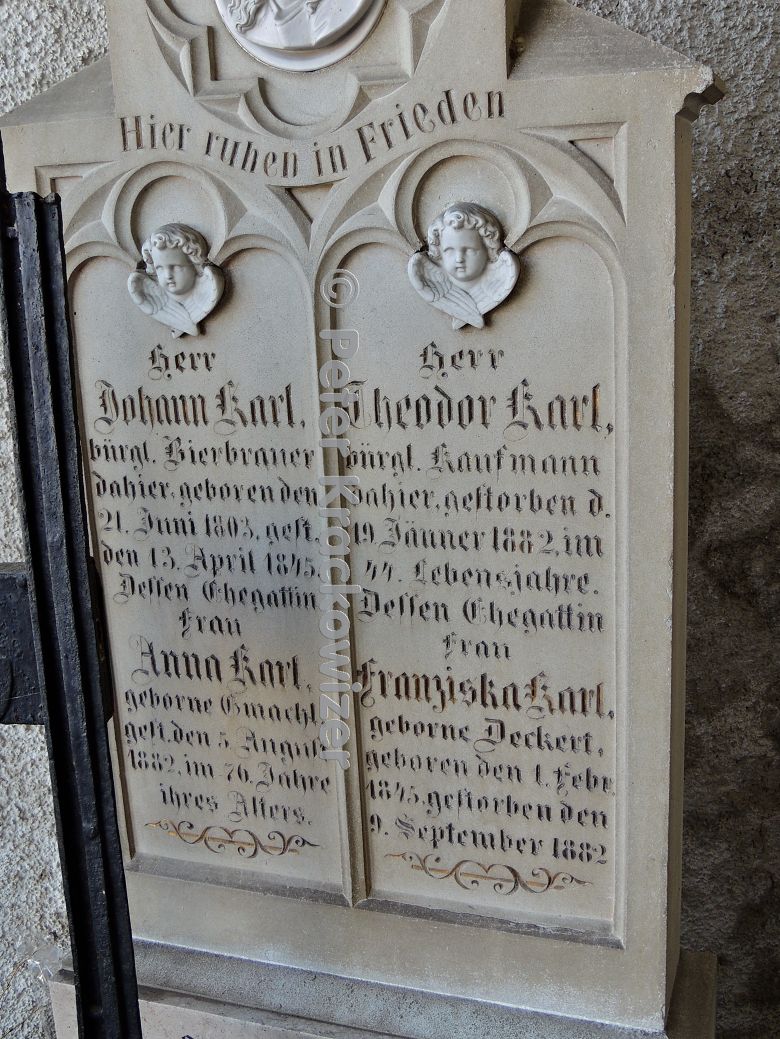 Hier ruhen in Frieden
Herr
Johann Karl,
bürgl. Bierbrauer
dahier, geboren den
21. Juni 1803, gest.
den 13. April 1845.
Dessen Ehegattin
Frau
Anna Karl,
geborne Gmachl,
gest. den 5. August
1882, im 76. Jahre
ihres Alters.
Herr
Theodor Karl,
bürgl. Kaufmann
dahier, gestorben d.
19. Jänner 1882, im
44. Lebensjahre.
Dessen Ehegattin
Frau
Franziska Karl,
geborne Deckert,
geboren den 1. Febr.
1845, gestorben den
9. September 1882
© Peter Krackowizer